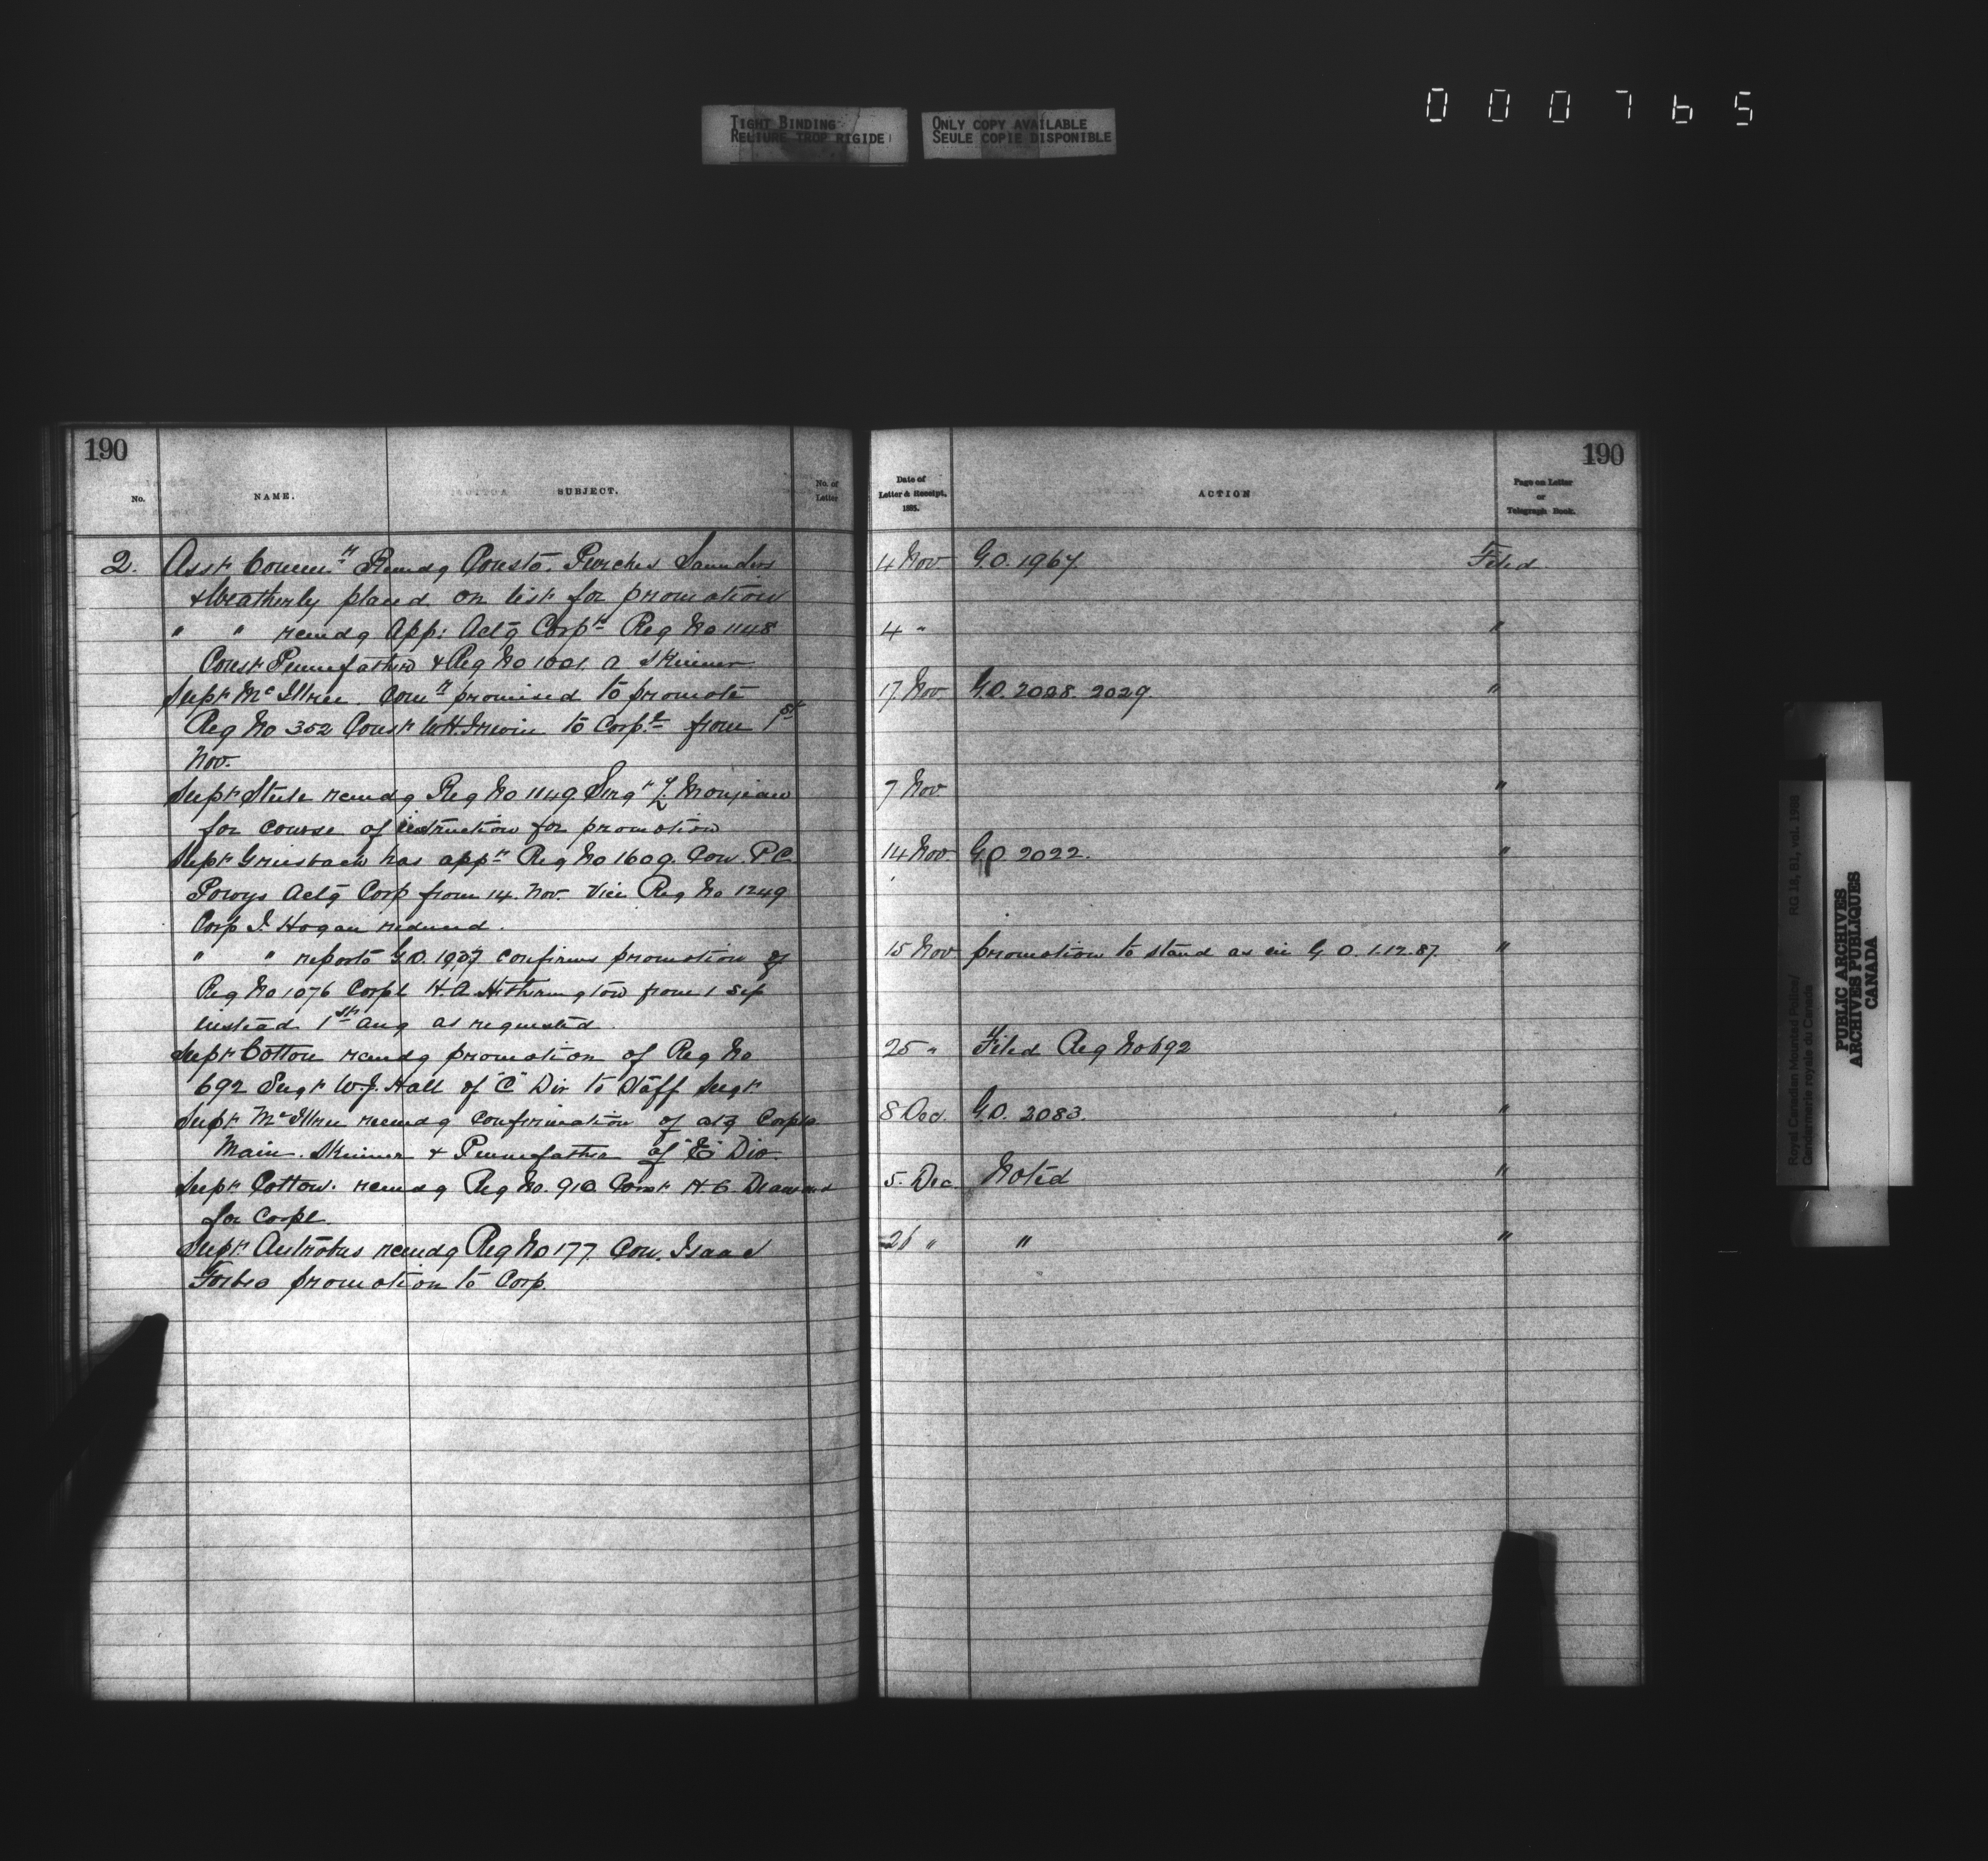 000765
TIGHT BINDING
RELIURE TROP RIGIDE
ONLY COPY AVAILABLE
SEULE COPIE DISPONIBLE
190
No.
NAME.
SUBJECT.
No. of
Letter
2. Asst Commr. Remdg Consts. Purches Saunders
& Weatherly placed on list for promotion
" " remdg App: Actg Corpl Reg No 1148
Const Pennefather & Reg No 1001. A Skinner
Supt McIllree. Comr promised to promote
Reg No 352 Const W.H. Irwin to Corpl from 1st
Nov.
Supt Steele remdg Reg No 1149 Sergt Z Monjeau
for course of instruction for promotion
Supt Griesbach has appt Reg No 1609. Con. P.C.
Powys Actg Corp from 14. Nov. Vice Reg No 1249
Corp J. Hogan reduced.
" " reports G.O. 1937 confirms promotion of
Reg No 1076 Corpl H.A. Hetherington from 1 Sep
instead 1st Aug as requested.
Supt Cotton remdg promotion of Reg No
692 Sergt W.J. Hall of "C" Div to Staff Sergt.
Supt McIllree recmdg confirmation of actg Corpls
Main. Skinner & Pennefather of "E" Div.
Supt Cotton. remdg Reg No. 910 Const H.C.
for Corpl.
Supt. Antrobus remdg Reg No 177. Con. Isaac
Forbes promotion to Corp.
190
Date of
Letter & Receipt,
1885.
ACTION
Page on Letter
or
Telegraph Book.
4 Nov G.O. 1967. Filed.
4 " "
17 Nov G.O. 2028. 2029. "
7 Nov "
14 Nov. G.O. 2022. "
15 Nov promotion to stand as in G.O. 1.12.87. "
25 " Filed Reg No 692
8 Dec. G.O. 2083. "
5. Dec. Noted "
26 " " "
Royal Canadian Mounted Police/ RG 18, B1, vol. 1988
Gendarmerie royale du Canada
PUBLIC ARCHIVES
ARCHIVES PUBLIQUES
CANADA